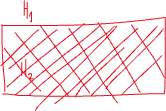 H₁
H₂